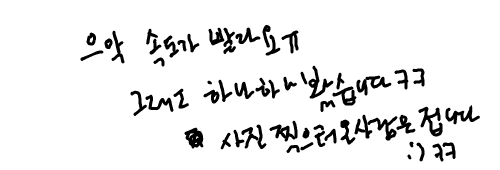 으악 속도가 빨라요ㅠ
그래도 하나하나 와습니다 ㅋㅋ
사진 찍으러 온 사람은 접니다
:) ㅋㅋ